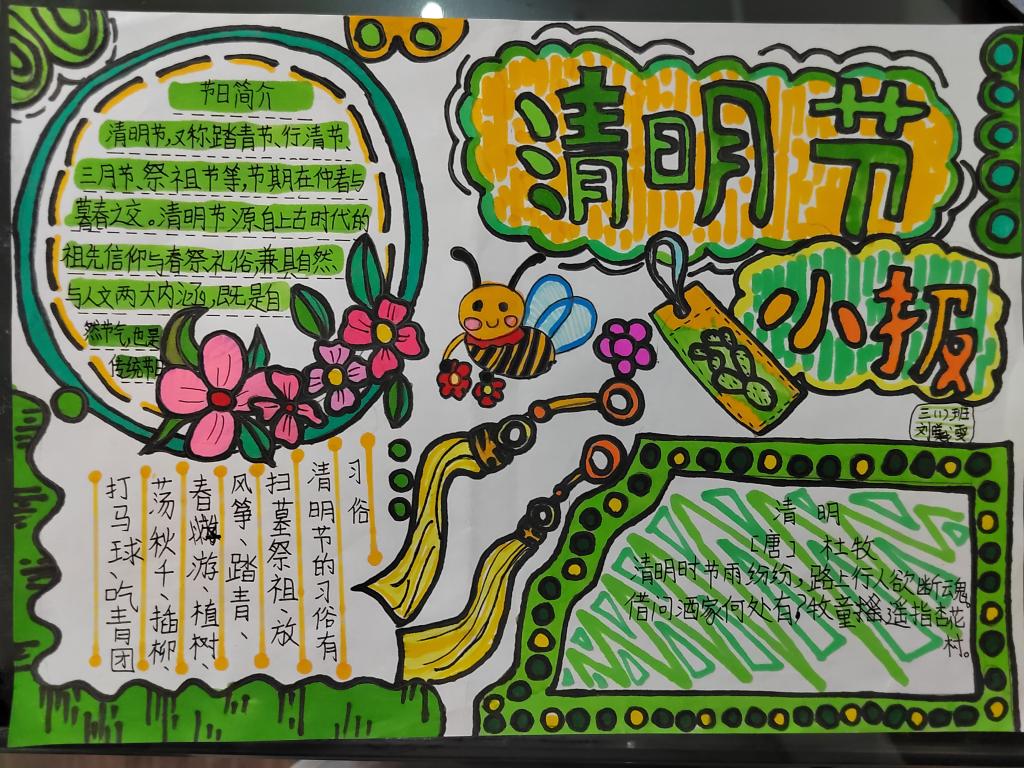 清明节
小报
三(1)班
节日简介
清明节,又称踏青节、行清节、
三月节、祭祖节等,节期在仲春与
暮春之交。清明节源自上古时代的
祖先信仰与春祭礼俗,兼具自然
与人文两大内涵,既是自
然节气,也是
传统节日
习俗
清明节的习俗有
扫墓祭祖、放
风筝、踏青、
春游、植树、
荡秋千、插柳、
打马球、吃青团
清明
[唐] 杜牧
清明时节雨纷纷,路上行人欲断魂。
借问酒家何处有?牧童遥指杏花
村。